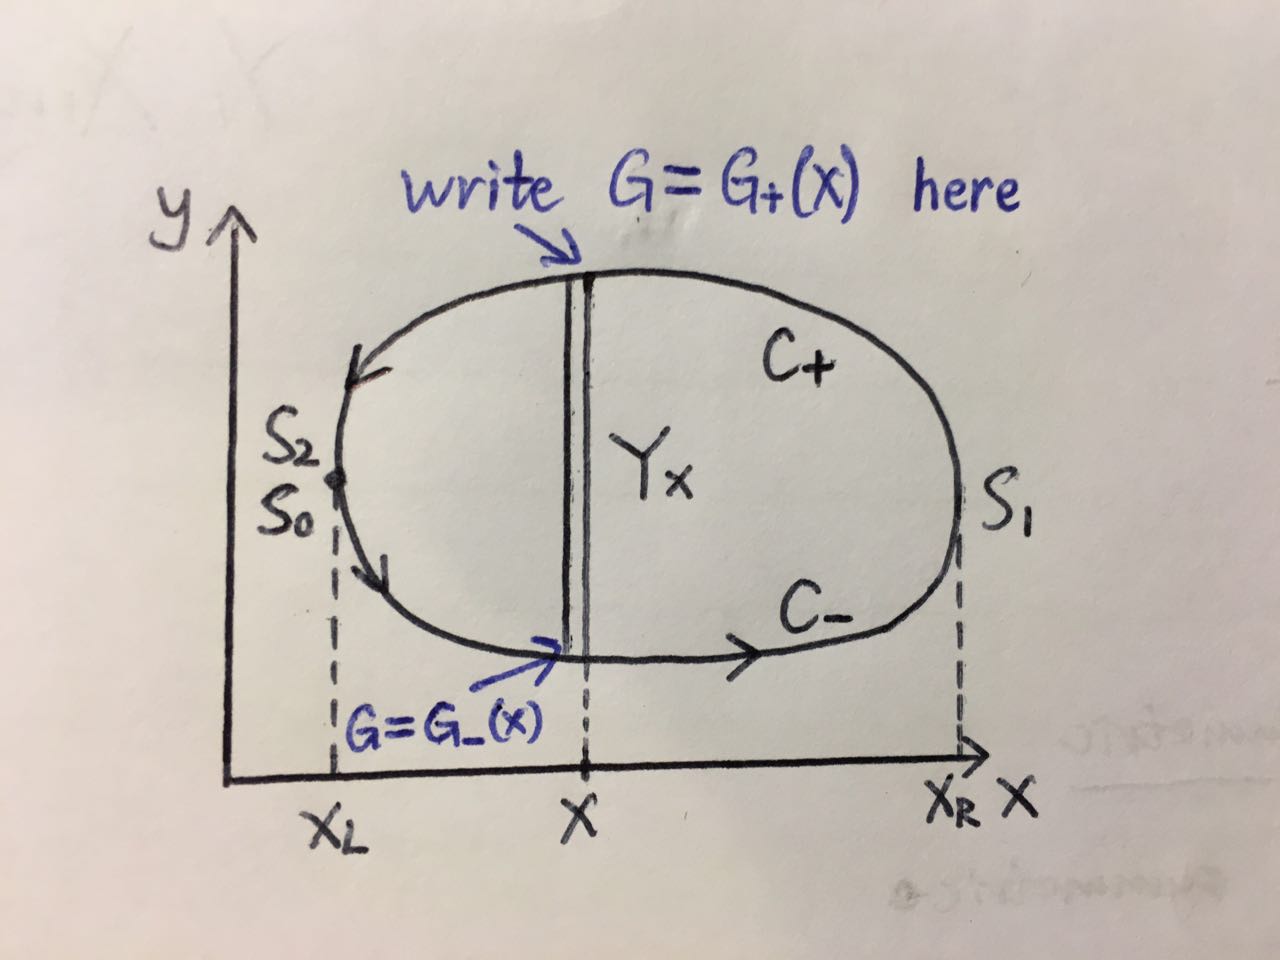 write G=G₊(x) here
y
C₊
S₂
Yₓ
S₀
S₁
C₋
G=G₋(x)
X_L
X
X_R
X